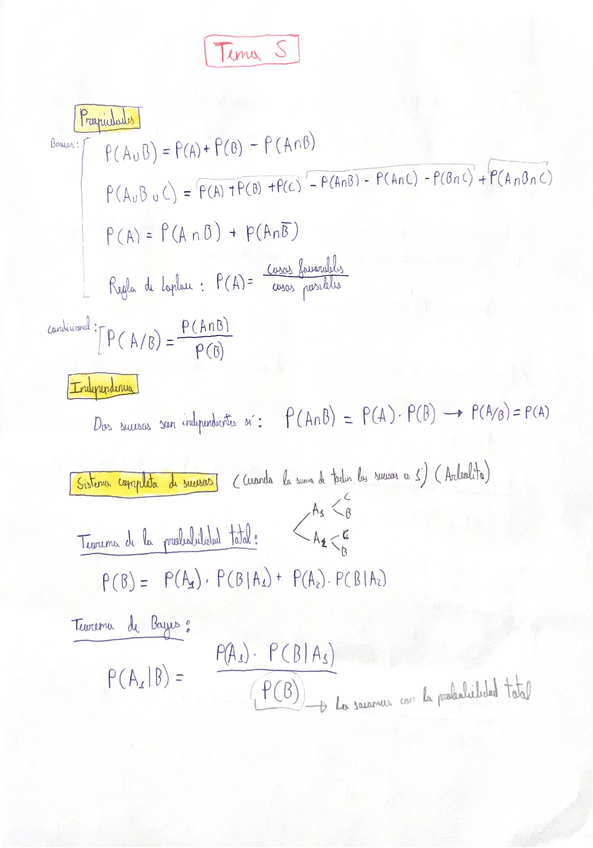 Tema 5
Propiedades
Bases:
P(A∪B) = P(A) + P(B) - P(A∩B)
P(A∪B∪C) = P(A) + P(B) + P(C) - P(A∩B) - P(A∩C) - P(B∩C) + P(A∩B∩C)
P(A) = P(A∩B) + P(A∩B̅)
Regla de Laplace: P(A) = casos favorables / casos posibles
Condicional: P(A/B) = P(A∩B) / P(B)
Independencia
Dos sucesos son independientes si: P(A∩B) = P(A) · P(B) → P(A/B) = P(A)
Sistema completo de sucesos (Cuando la suma de todos los sucesos es 1) (Arbolito)
A1 C B
A2 C B
Teorema de la probabilidad total:
P(B) = P(A1) · P(B|A1) + P(A2) · P(B|A2)
Teorema de Bayes:
P(A1|B) = P(A1) · P(B|A1) / P(B)
→ La sacamos con la probabilidad total